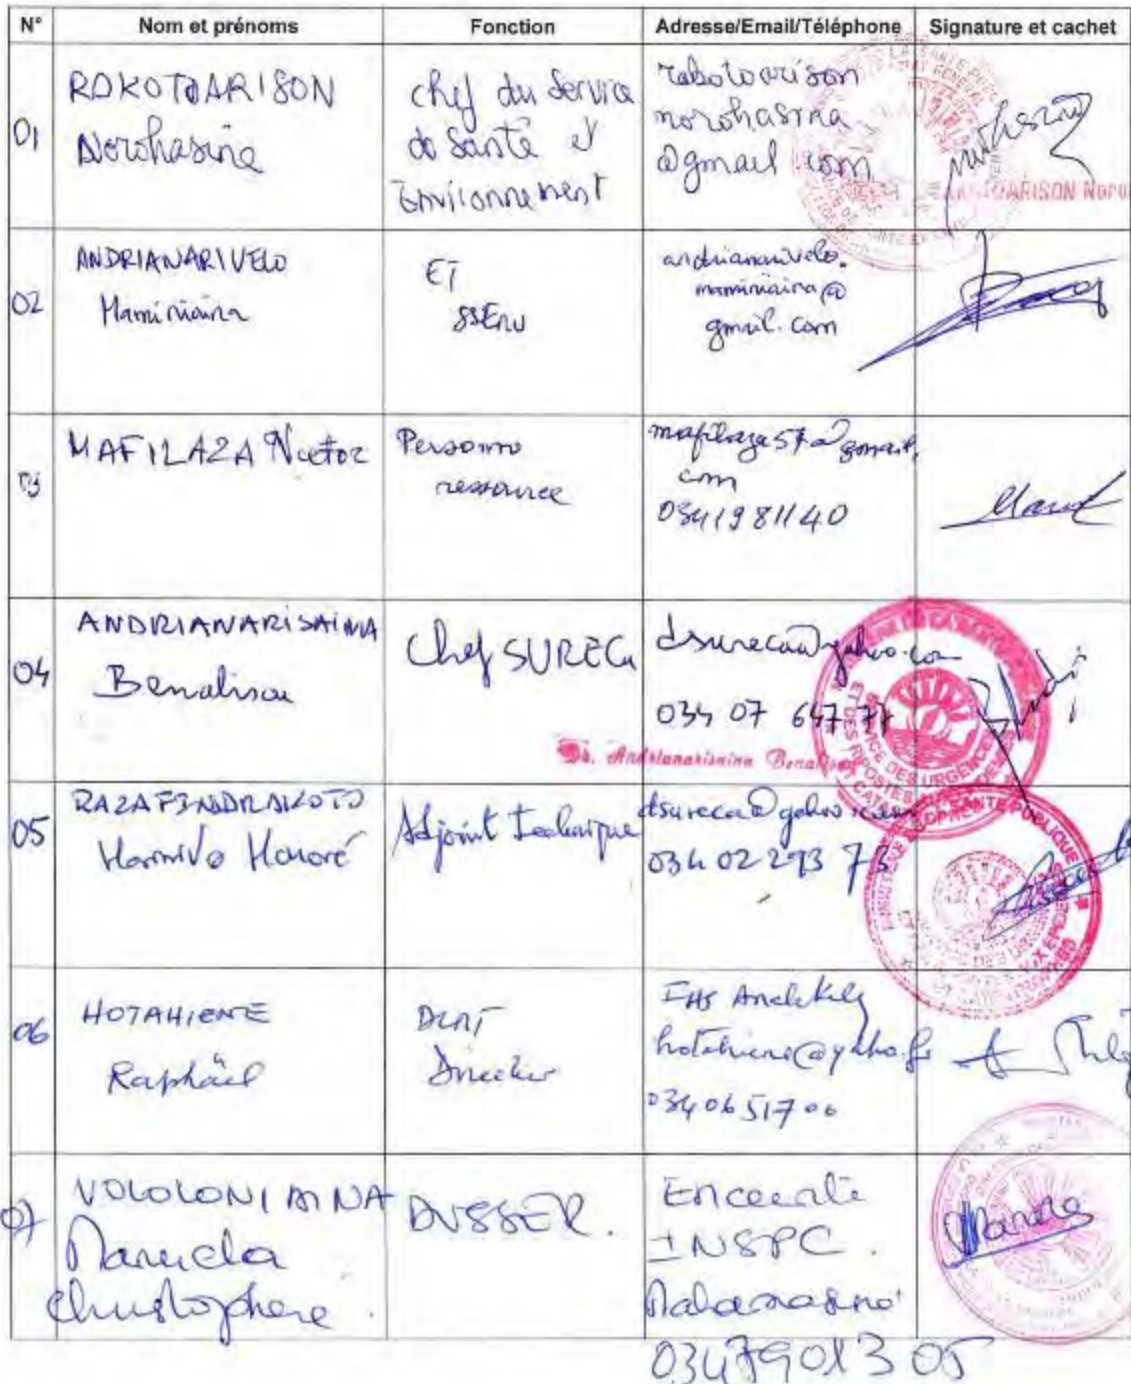 N° Nom et prénoms Fonction Adresse/Email/Téléphone Signature et cachet
01
RAKOTOARISON
Norohasina
Chef du Service
de Santé et
Environnement
rakotoarison
norohasina
@gmail.com
02
ANDRIANARIVELO
Maminiaina
ET
SSEnv
andrianarivelo.
maminiaina@
gmail.com
03
MAFILAZA
Personne
ressource
mafilaza57@gmail.
com
0341981140
04
ANDRIANARISAINA
Benalisoa
Chef SURECa
dsureca@yahoo.com
034 07 647 77
Dr. Andrianarisaina Benalisoa
SERVICE DES URGENCES
ET DES RIPOSTES
05
Harmivo Honoré
Adjoint Technique
dsureca@yahoo.com
034 02 293 73
SANTE PUBLIQUE
06
HOTAHIENE
Raphäel
Director
hotahiene@yahoo.fr
0340651700
07
VOLOLONIAINA
Manuela
Christophère.
DVSSER.
Enceinte
INSPC.
Mahamasina
0347901305